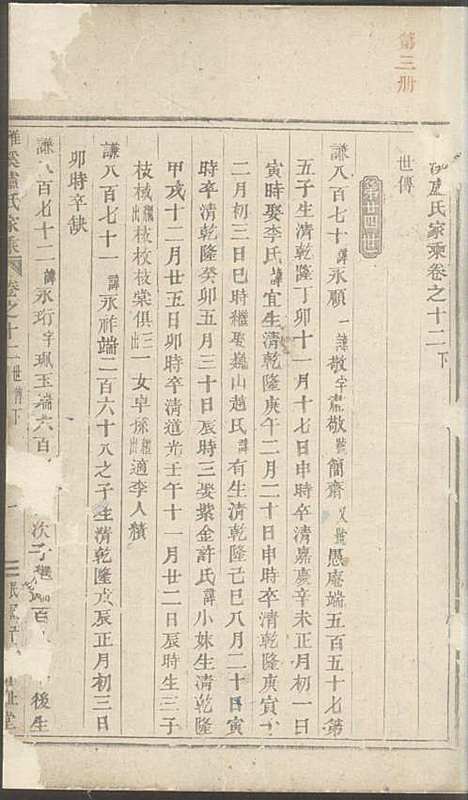 第三册
盧氏家乘卷之十二下
世傳
謙八百七十諱永順一諱敬字肅敬號簡齋又號愚庵端五百五十七第
五子生清乾隆丁卯十一月十七日申時卒清嘉慶辛未正月初一日
寅時娶李氏諱宜生清乾隆庚午二月二十日申時卒清乾隆庚寅十
二月初三日巳時繼娶巍山趙氏諱有生清乾隆己巳八月二十日寅
時卒清乾隆癸卯五月三十日辰時三娶紫金許氏諱小妹生清乾隆
甲戌十二月廿五日卯時卒清道光壬午十一月廿二日辰時生三子
枝棫繼出枝枚枝棠俱三出一女卓孫繼出適李人積
謙八百七十一諱永祚端二百六十八之子生清乾隆戊辰正月初三日
卯時卒缺
謙八百七十二諱永珩字珮玉端六百
次子
百
後生
雅溪盧氏家乘
卷之十二世傳下
一